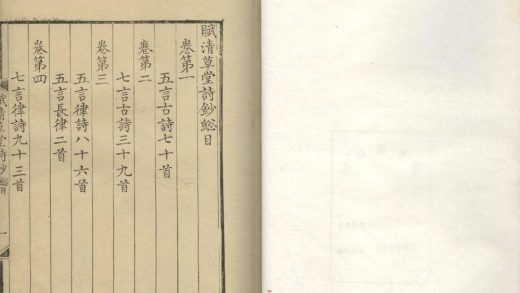 賦清草堂詩鈔総目
卷第一
五言古詩七十首
卷第二
七言古詩三十九首
卷第三
五言律詩八十六首
五言長律二首
卷第四
七言律詩九十三首
賦清草堂詩鈔總目
一